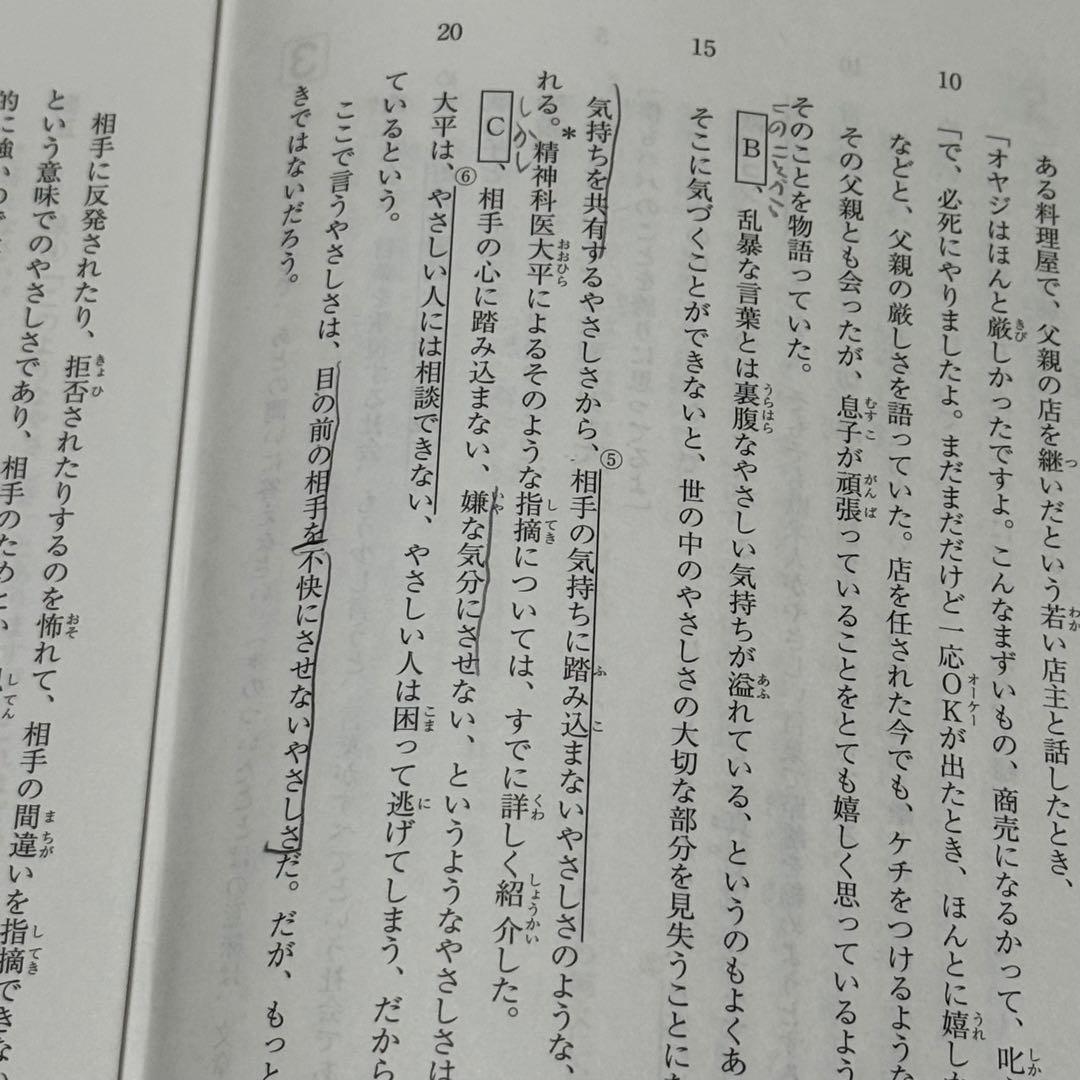 ある料理屋で、父親の店を継いだという若い店主と話したとき、
「オヤジはほんと厳しかったですよ。こんなまずいもの、商売になるかって、叱
10
「で、必死にやりましたよ。まだまだだけど一応OKが出たとき、ほんとに嬉し
などと、父親の厳しさを語っていた。店を任された今でも、ケチをつけるような
その父親とも会ったが、息子が頑張っていることをとても嬉しく思っているよう
そのことを物語っていた。
15
B、乱暴な言葉とは裏腹なやさしい気持ちが溢れている、というのもよくあ
そこに気づくことができないと、世の中のやさしさの大切な部分を見失うことにな
気持ちを共有するやさしさから、⑤相手の気持ちに踏み込まないやさしさのような、
れる。*精神科医大平によるそのような指摘については、すでに詳しく紹介した。
しかし
20
C、相手の心に踏み込まない、嫌な気分にさせない、というようなやさしさは
大平は、⑥やさしい人には相談できない、やさしい人は困って逃げてしまう、だから
ているという。
ここで言うやさしさは、目の前の相手を不快にさせないやさしさだ。だが、もっと
きではないだろう。
相手に反発されたり、拒否されたりするのを怖れて、相手の間違いを指摘できない
という意味でのやさしさであり、相手のためとい
的に強いので